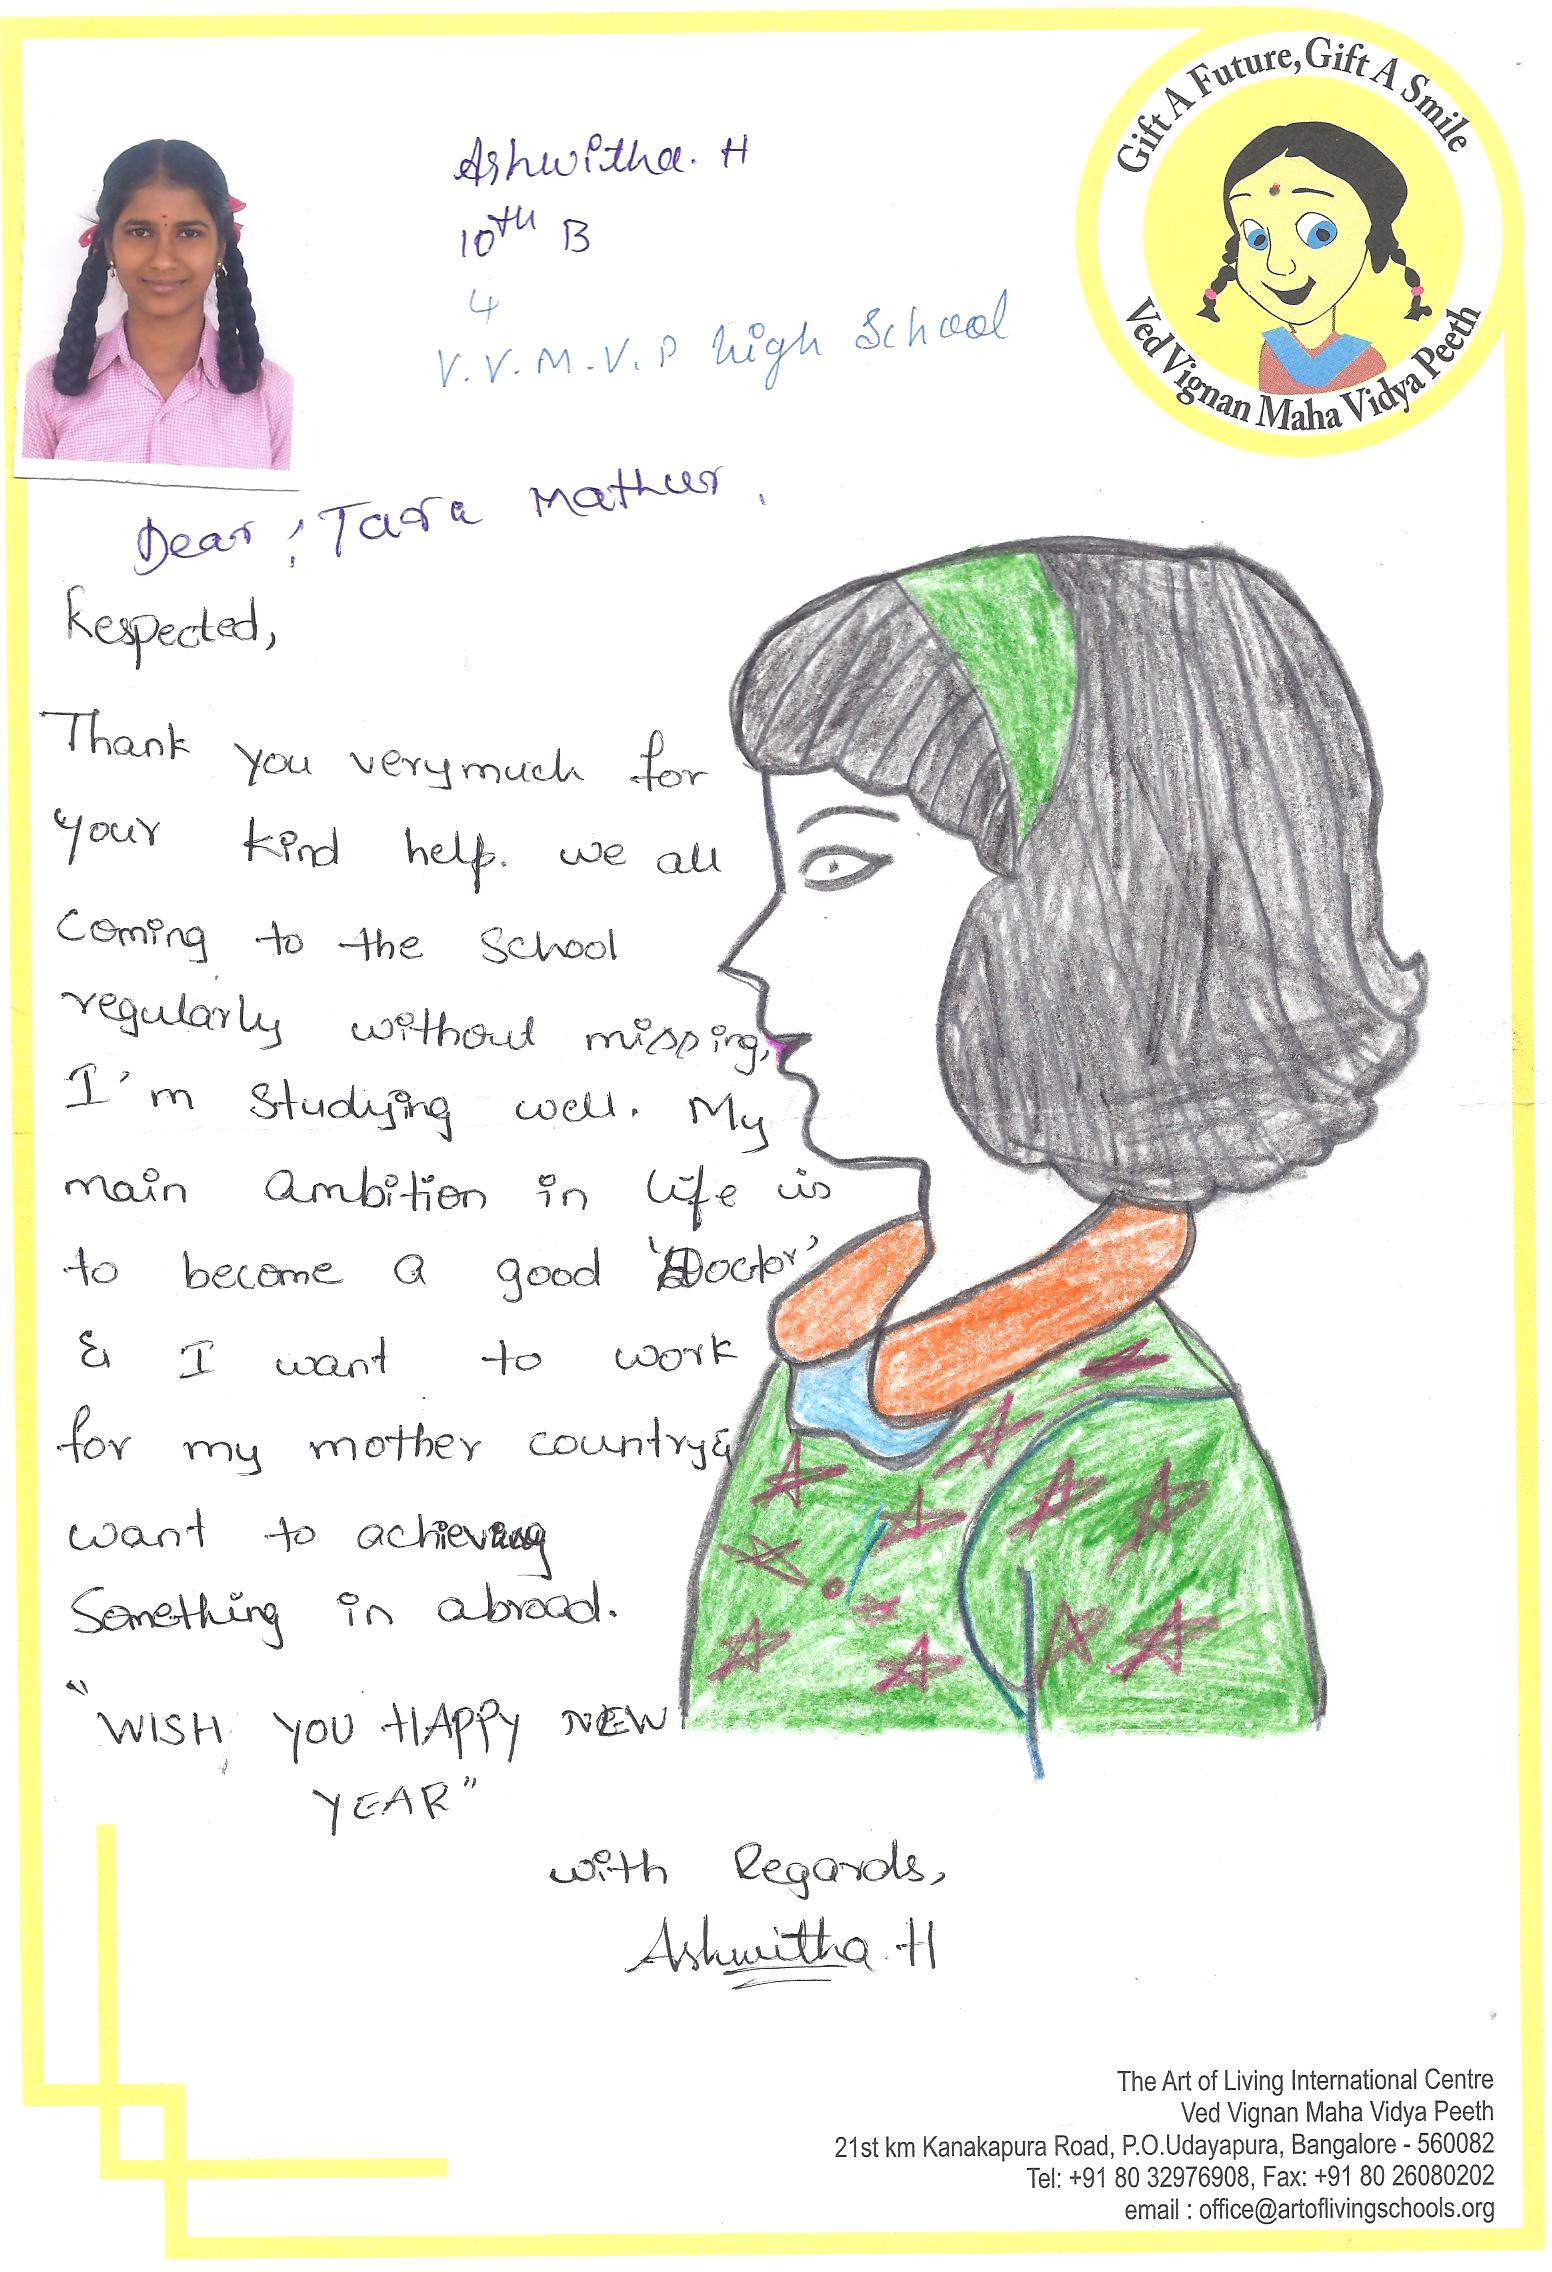 Gift A Future, Gift A Smile
Ved Vignan Maha Vidya Peeth
Ashwitha. H
10th B
4
V.V.M.V.P high School
Dear, Tara Mathur,
Respected,
Thank you verymuch for
your kind help. we all
coming to the school
regularly without missing,
I'm studying well. My
main ambition in life is
to become a good 'Doctor'
& I want to work
for my mother country&
want to achieving
Something in abroad.
"WISH YOU HAPPY NEW
YEAR"
with Regards,
Ashwitha.H
The Art of Living International Centre
Ved Vignan Maha Vidya Peeth
21st km Kanakapura Road, P.O.Udayapura, Bangalore - 560082
Tel: +91 80 32976908, Fax: +91 80 26080202
email : office@artoflivingschools.org